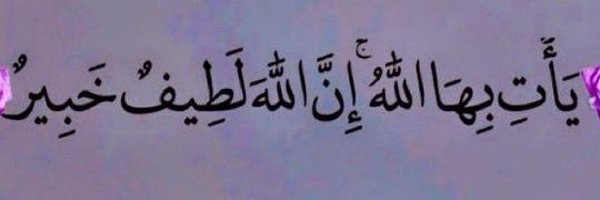 يَأْتِ بِهَا اللَّهُ ۚ إِنَّ اللَّهَ لَطِيفٌ خَبِيرٌ